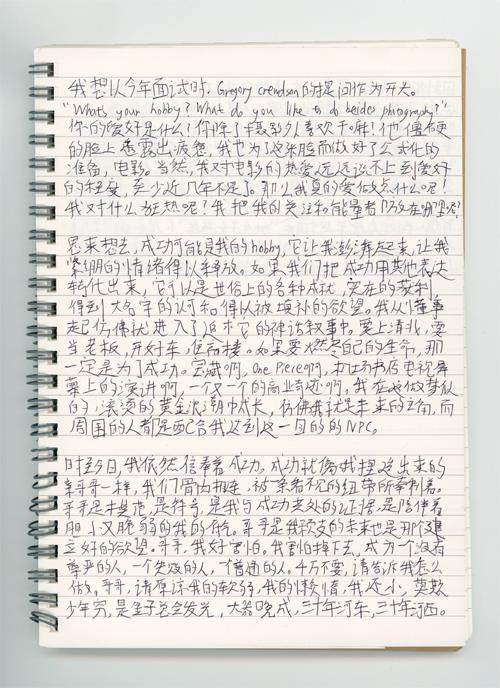 我想以今年面试时, Gregory crewdson的提问作为开头。
"Whats your hobby? What do you like to do beides photography?"
你的爱好是什么! 你除了摄影外喜欢干嘛! 他僵硬
的脸上透露出疲惫, 我也为这张脸而做好了公式化的
准备, 电影。当然, 我对电影的热爱远远谈不上到爱好
的程度, 至少近几年不是了。那么我真的爱做点什么呢!
我对什么狂热呢? 我把我的关注和能量都放在哪里呢!
思来想去, 成功可能是我的hobby, 它让我澎湃起来, 让我
紧绷的情绪得以释放。如果我们把成功用其他表达
转化出来, 它可以是世俗上的各种成就, 实在的获利
得到大名字的认可和得以被填补的欲望。我从懂事
起仿佛就进入了这本它的神话叙事中, 要上清北, 要
当老板, 开好车, 住高楼。如果要燃尽自己的生命, 那
一定是为了成功。宝藏啊, One Piece啊, 成功书店电视屏
幕上的演讲啊, 一个又一个的商业奇迹啊。我在这做梦似
的滚烫的黄金浪潮中成长, 仿佛我就是未来的主角, 而
周围的人都是配合我达到这一目的的NPC。
时至今日, 我依然信奉着成功。成功就像我捏造出来的
亲哥哥一样, 我们骨肉相连, 被一条看不见的纽带所牵制着。
哥哥是榜样, 是符号, 是我与成功支处的证据, 是陪伴着
胆小又脆弱的我的伤。哥哥是我预支的未来也是那个建
立好的欲望。哥哥, 我好害怕。我害怕掉下去, 成为一个没有
尊严的人, 一个失败的人, 一个普通的人。千万不要, 请告诉我怎么
做。哥哥, 请原谅我的软弱, 我的懒惰, 我还小, 莫欺
少年穷, 是金子总会发光, 大器晚成, 三十年河东, 三十年河西。